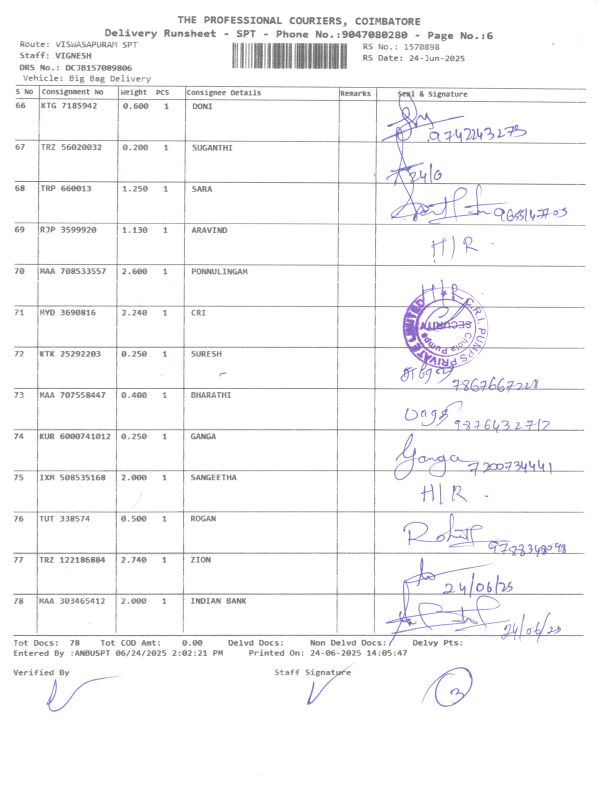 THE PROFESSIONAL COURIERS, COIMBATORE
Delivery Runsheet - SPT - Phone No.:9047080280 - Page No.:6
Route: VISWASAPURAM SPT RS No.: 1570898
Staff: VIGNESH RS Date: 24-Jun-2025
DRS No.: DCJB157089806
Vehicle: Big Bag Delivery
S No Consignment No Weight PCS Consignee Details Remarks Seal & Signature
66 KTG 7185942 0.600 1 DONI
9742243275
67 TRZ 56020032 0.200 1 SUGANTHI
24/6
68 TRP 660013 1.250 1 SARA
69 RJP 3599920 1.130 1 ARAVIND
H/R
70 MAA 708533557 2.600 1 PONNULINGAM
H/R
71 MYD 3690816 2.240 1 CRI
C.R.I. PUMPS PRIVATE LIMITED
SECURITY
72 KTK 25292203 0.250 1 SURESH
7867667228
73 MAA 707558447 0.400 1 BHARATHI
9876432717
74 KUR 6000741012 0.250 1 GANGA
Ganga 7200734441
75 IXM 508535168 2.000 1 SANGEETHA
H/R
76 TUT 338574 0.500 1 ROGAN
77 TRZ 122186884 2.740 1 ZION
24/06/25
78 MAA 303465412 2.000 1 INDIAN BANK
24/06/25
Tot Docs: 78 Tot COD Amt: 0.00 Delvd Docs: Non Delvd Docs: Delvy Pts:
Entered By :ANBUSPT 06/24/2025 2:02:21 PM Printed On: 24-06-2025 14:05:47
Verified By Staff Signature
3